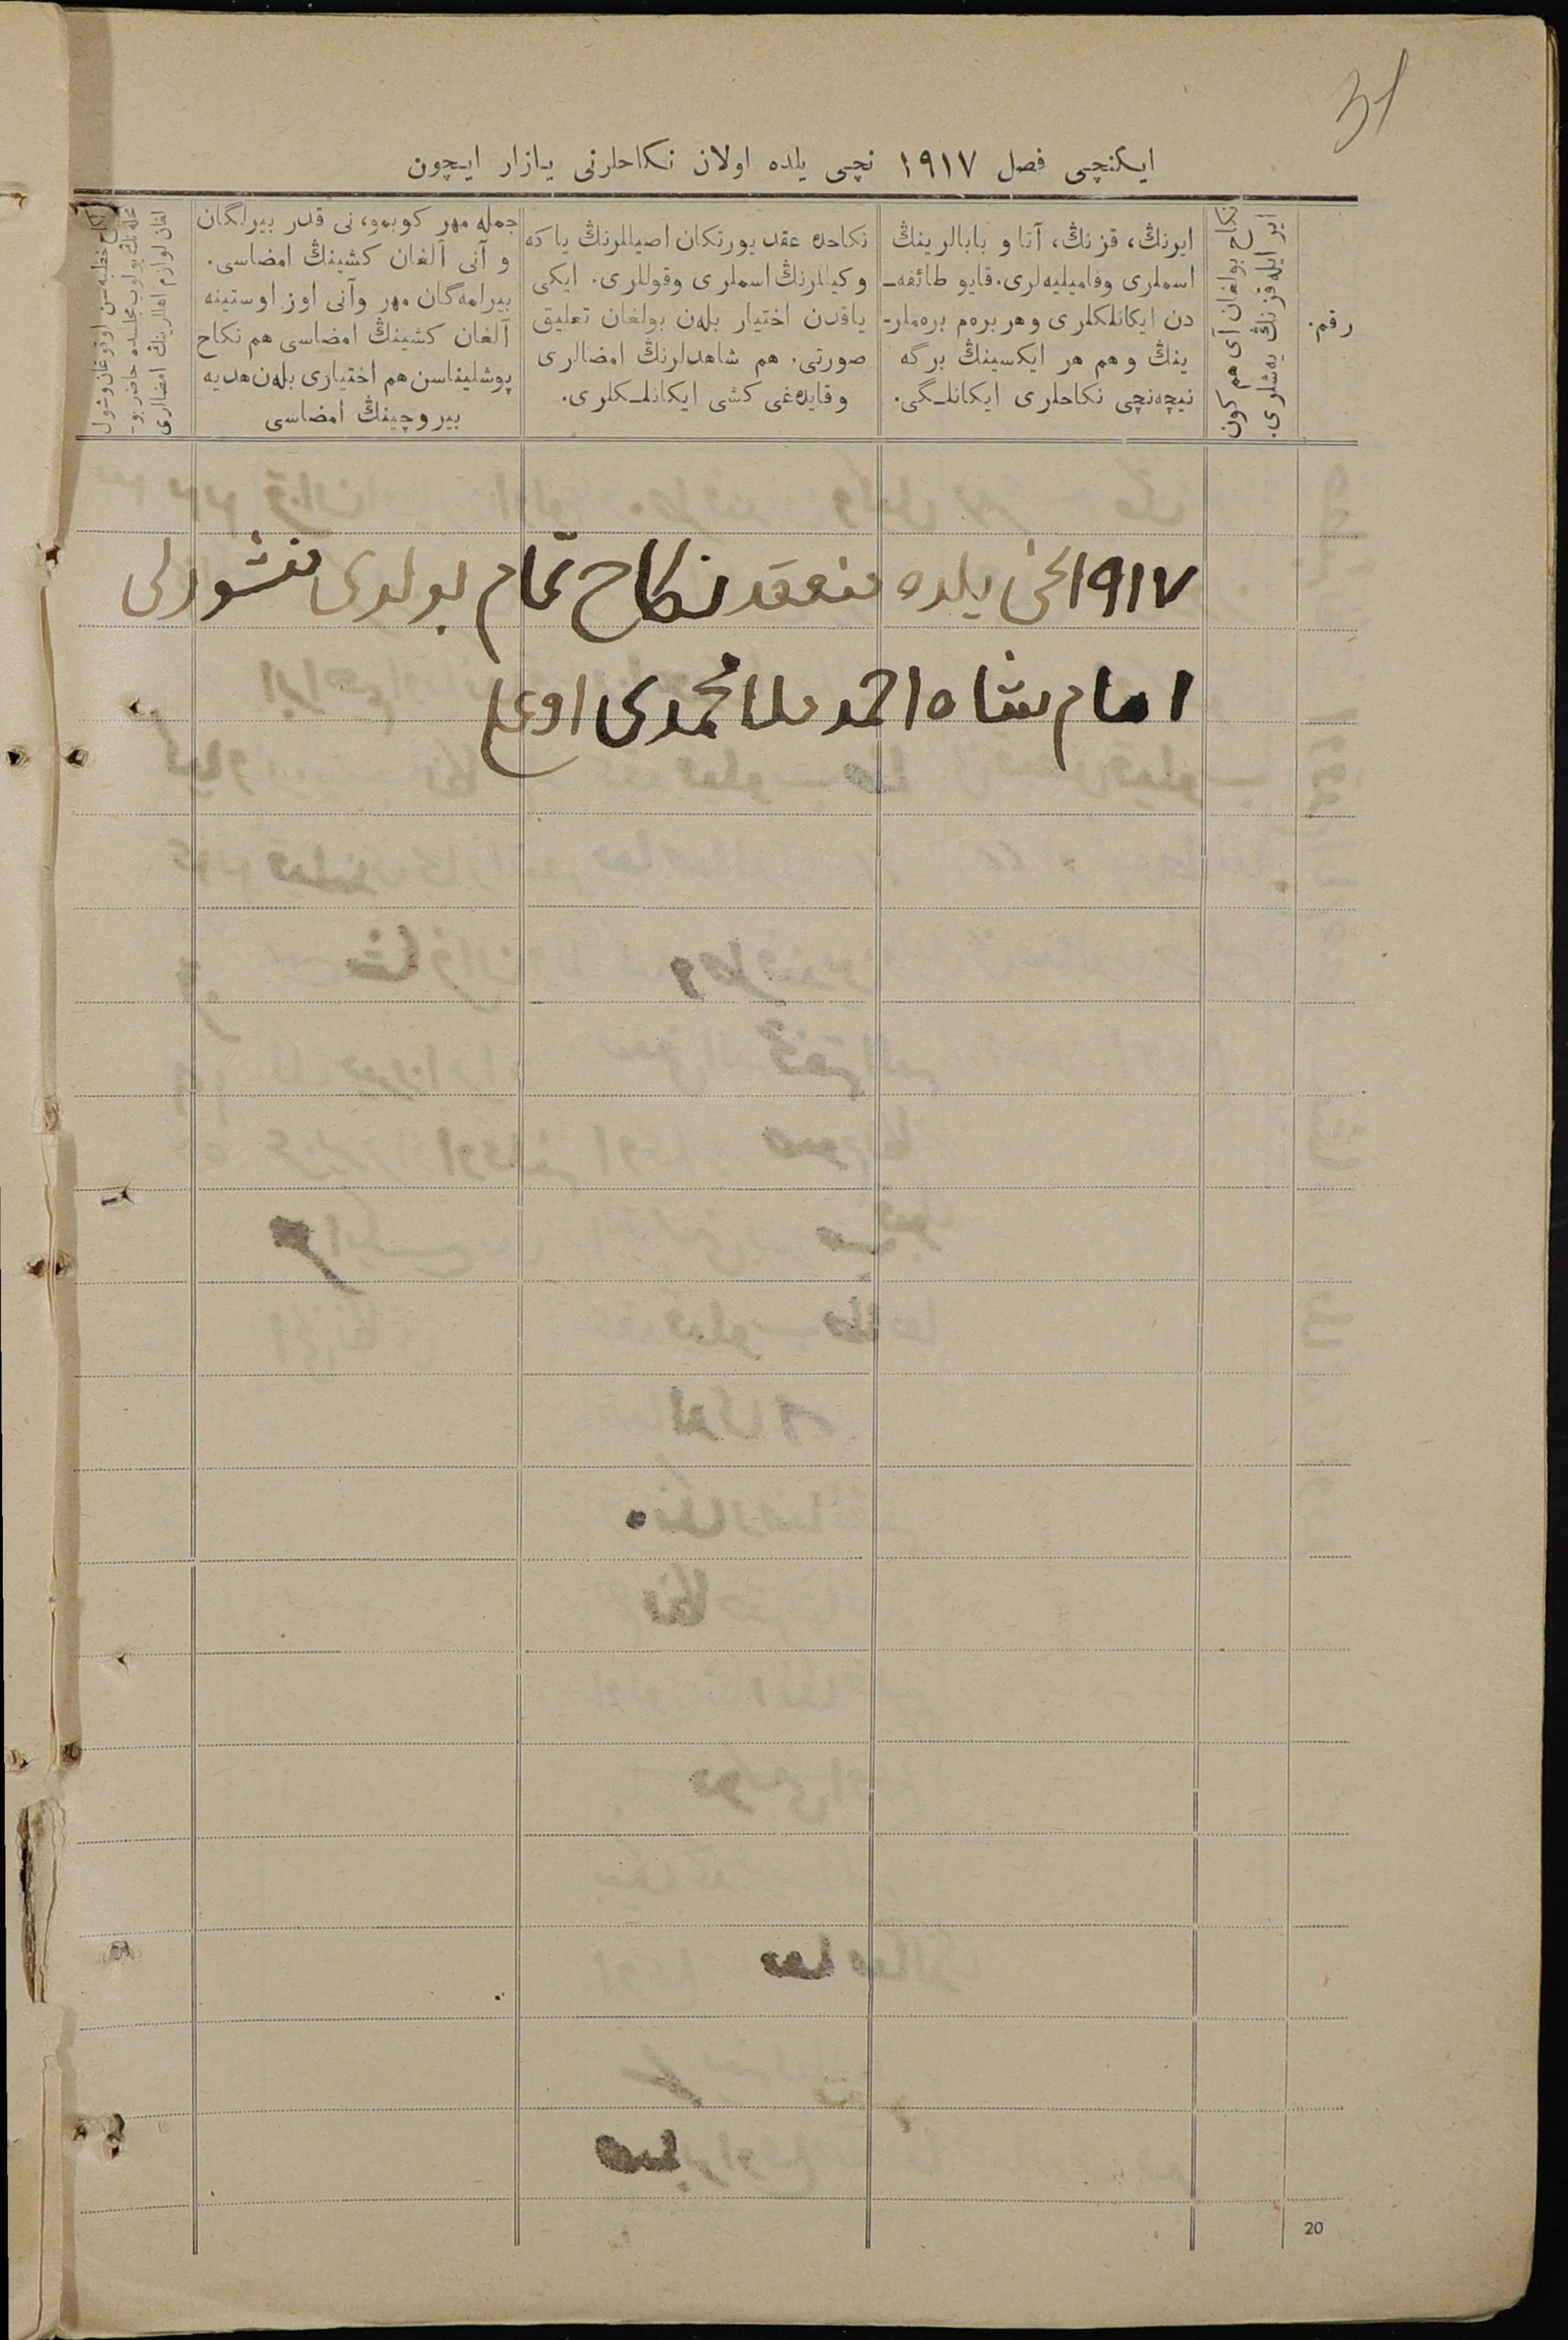 31
ایكنچی فصل ۱۹۱۷ نچی یلده اولان نكاحلرنی یازار ایچون
رقم.
نكاح بولغان آی هم كون
ایر ایله قزنڭ یه‌شلری.
ایرنڭ، قزنڭ، آتا و بابالرینڭ
اسملری وفامیلیه‌لری. قایو طائفه‌ـ
دن ایكانلكلری وهر بره‌م بره‌ملرـ
ینڭ و هم هر ایكسینڭ برگه
نیچه‌نچی نكاحلری ایكانلـگی.
نكاحده عقد یورتكان اصیللرنڭ یا كه
وكیللرنڭ اسملری وقوللری. ایكی
یاقدن اختیار بله‌ن بولغان تعلیق
صورتی. هم شاهدلرنڭ امضالری
وقایده‌غی كشی ایكانلـكلری.
جمله مهر كوبمو، نی قدر بیرلگان
و آنی آلغان كشینڭ امضاسی.
بیرلمه‌گان مهر وآنی اوز اوستینه
آلغان كشینڭ امضاسی هم نكاح
پوشلیناسن هم اختیاری بله‌ن هدیه
بیروچینڭ امضاسی
نكاح خطبه‌سن اوقوغان وشول
محله‌نڭ بولوب مجلسده حاضر بوـ
لغان لوازم اهاللرینڭ امضالری
۱۹۱۷ نچی یلده منعقد نكاح تمام بولدی
امام شاه احمد ملا محمدی اوغلی
20